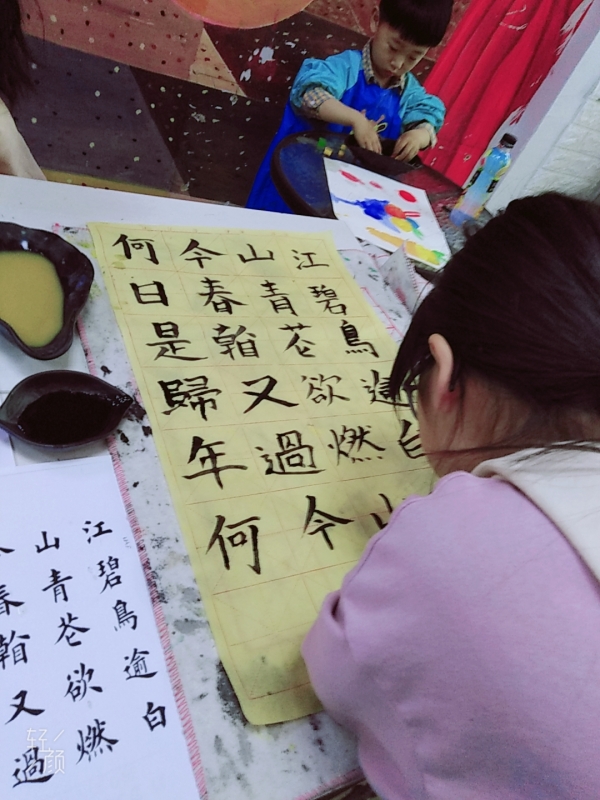 江碧鳥白
山青花欲燃山
今春又過今
何日是歸年何
江碧鳥逾白
山青花欲燃
春又過
轻颜